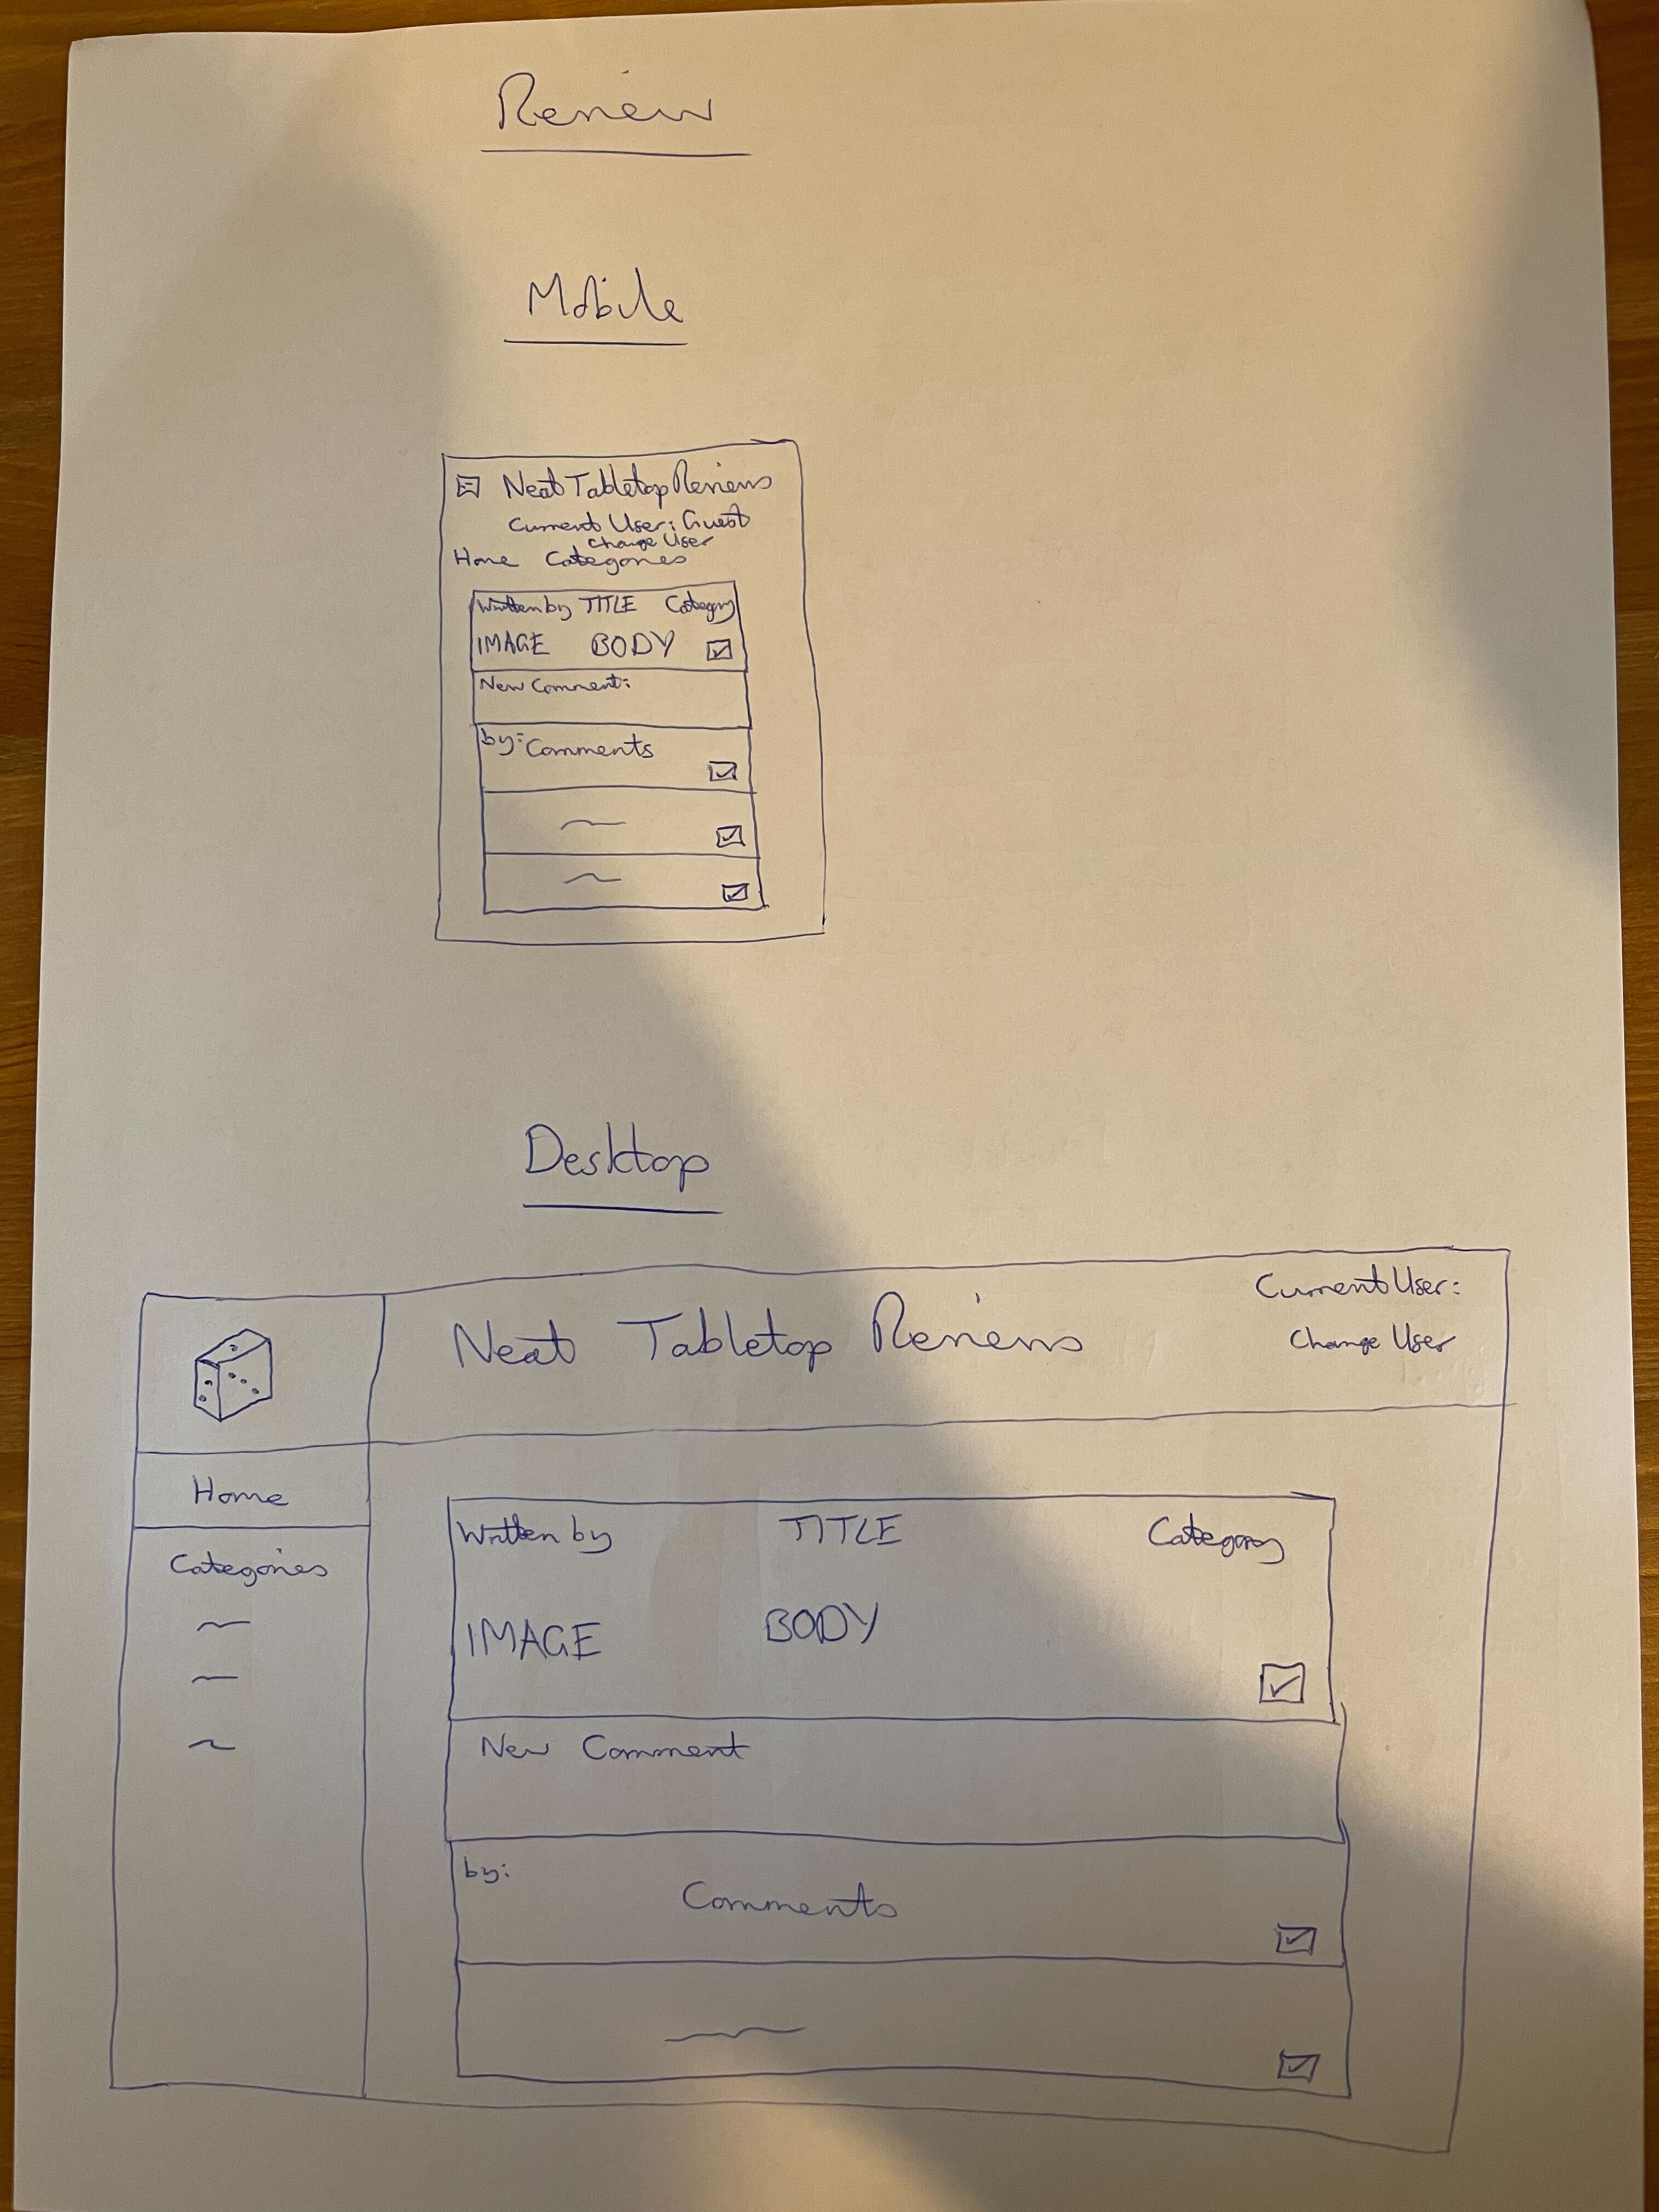 Review
Mobile
Neat Tabletop Reviews
Current User: Guest
Change User
Home Categories
Written by TITLE Category
IMAGE BODY
New Comment:
by: Comments
Desktop
Current User:
Neat Tabletop Reviews
Change User
Home
Written by TITLE Category
Categories
IMAGE BODY
New Comment
by:
Comments